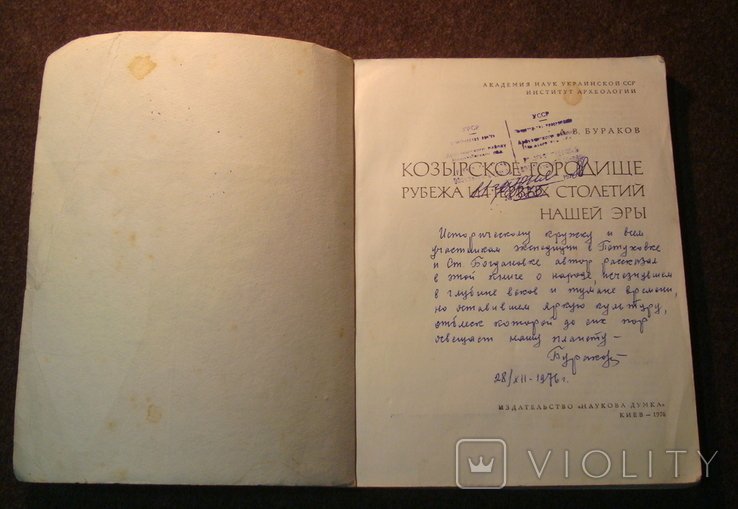 АКАДЕМИЯ НАУК УКРАИНСКОЙ ССР
ИНСТИТУТ АРХЕОЛОГИИ
УССР
УССР
А. В. БУРАКОВ
КОЗЫРСКОЕ ГОРОДИЩЕ
РУБЕЖА И ПЕРВЫХ СТОЛЕТИЙ
НАШЕЙ ЭРЫ
Историческому кружку и всем
участникам экспедиции в Петуховке
и Ст Богдановке автор рассказал
в этой книге о народе, исчезнувшем
в глубине веков и тумане времени,
но оставившем яркую культуру,
отблеск которой до сих пор
освещает нашу планету —
Бураков
28/XII-1976 г.
ИЗДАТЕЛЬСТВО «НАУКОВА ДУМКА»
КИЕВ — 1976
VIOLITY